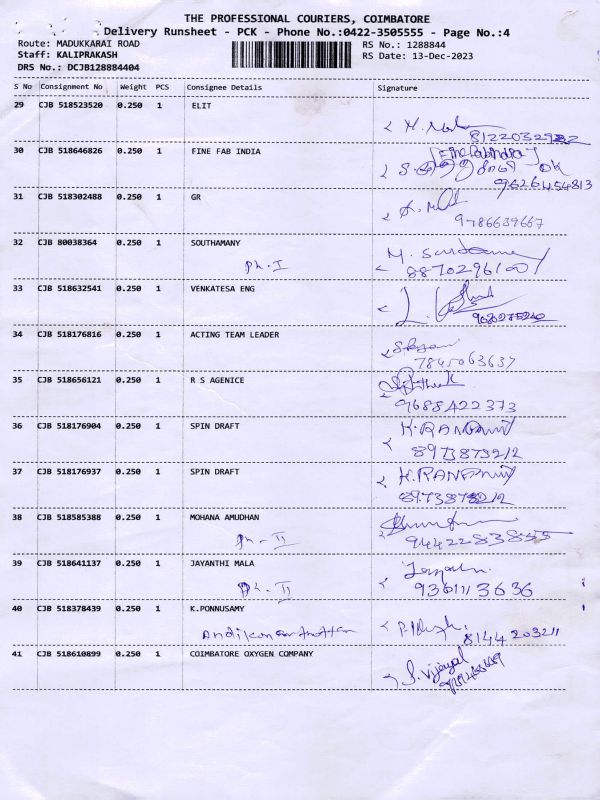 THE PROFESSIONAL COURIERS, COIMBATORE
Delivery Runsheet - PCK - Phone No.:0422-3505555 - Page No.:4
Route: MADUKKARAI ROAD RS No.: 1288844
Staff: KALIPRAKASH RS Date: 13-Dec-2023
DRS No.: DCJB128884404
S No Consignment No Weight PCS Consignee Details Signature
29 CJB 518523520 0.250 1 ELIT
8122032982
30 CJB 518646826 0.250 1 FINE FAB INDIA
OK
9626454813
31 CJB 518302488 0.250 1 GR
9786639667
32 CJB 80038364 0.250 1 SOUTHAMANY
Ph. I
33 CJB 518632541 0.250 1 VENKATESA ENG
34 CJB 518176816 0.250 1 ACTING TEAM LEADER
7845063637
35 CJB 518656121 0.250 1 R S AGENICE
9688422373
36 CJB 518176904 0.250 1 SPIN DRAFT
8973873212
37 CJB 518176937 0.250 1 SPIN DRAFT
8973873212
38 CJB 518585388 0.250 1 MOHANA AMUDHAN
Ph - II 9442283855
39 CJB 518641137 0.250 1 JAYANTHI MALA
Ph. II
40 CJB 518378439 0.250 1 K.PONNUSAMY
8144203211
41 CJB 518610899 0.250 1 COIMBATORE OXYGEN COMPANY